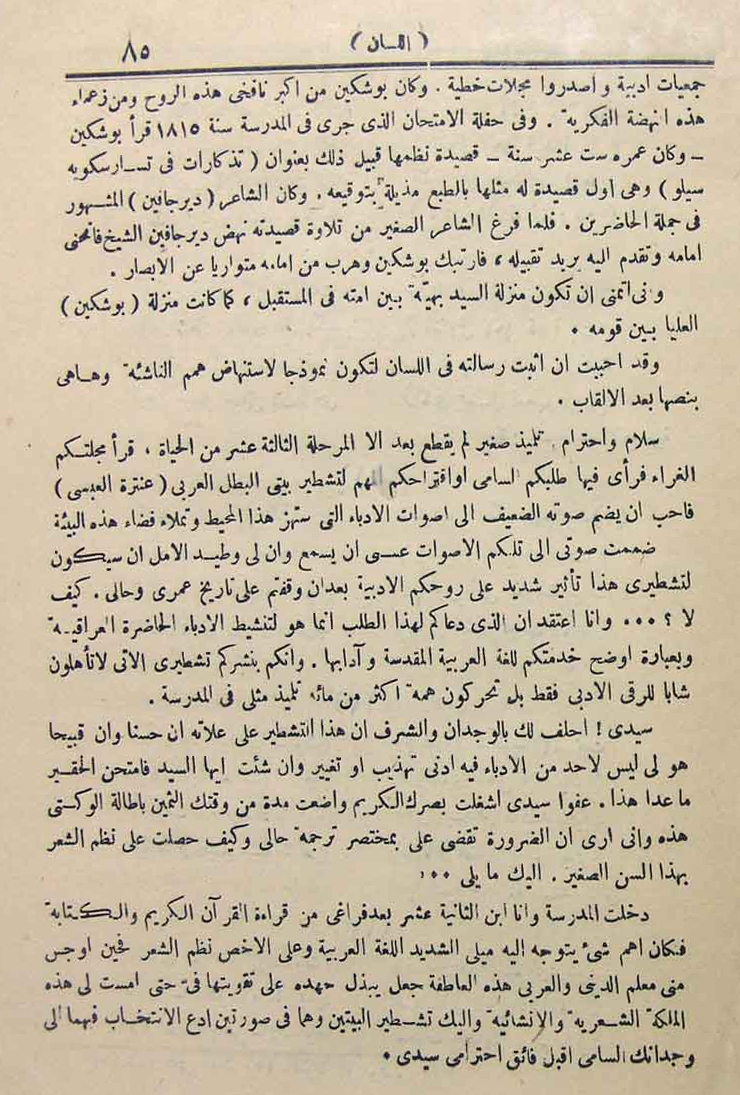 ٨٥
( اللسان )
جمعيات ادبية و اصدروا مجلات خطية . وكان بوشكين من اكبر نافخى هذه الروح ومن زعماء
هذه انهضة الفكرية . وفى حفلة الامتحان الذى جرى فى المدرسة سنة ١٨١٥ قرأ بوشكين
ــ وكان عمره ست عشر سنة ــ قصيدة نظمها قبيل ذلك بعنوان ( تذكارات فى تسارسكويه
سيلو ) وهى اول قصيدة له مثلها بالطبع مذيلة بتوقيعه . وكان الشاعر ( ديرجافين ) المشهور
فى جملة الحاضرين . فلما فرغ الشاعر الصغير من تلاوة قصيدته نهض ديرجافين الشيخ فانحنى
امامه وتقدم اليه يريد تقبيله ، فارتبك بوشكين وهرب من امامه متواريا عن الابصار .
وانى اتمنى ان تكون منزلة السيد بهية بين امته فى المستقبل ، كما كانت منزلة ( بوشكين )
العليا بين قومه .
وقد احببت ان اثبت رسالته فى اللسان لتكون نموذجا لاستنهاض همم الناشئة وهاهى
بنصها بعد الالقاب .
سلام واحترام . تلميذ صغير لم يقطع بعد الا المرحلة الثالثة عشر من الحياة ، قرأ مجلتكم
الغراء فرأى فيها طلبكم السامى اواقتراحكم المهم لتشطير بيتى البطل العربى ( عنترة العبسى )
فاحب ان يضم صوته الضعيف الى اصوات الادباء التى ستهز هذا المحيط وتملاء فضاء هذه البيئة
ضممت صوتى الى تلكم الاصوات عسى ان يسمع وان لى وطيد الامل ان سيكون
لتشطيرى هذا تأثير شديد على روحكم الادبية بعدان وقفتم على تاريخ عمرى وحالى . كيف
لا ؟ ... وانا اعتقد ان الذى دعاكم لهذا الطلب انما هو لتنشيط الادباء الحاضرة العراقية
وبعبارة اوضح خدمتكم للغة العربية المقدسة و آدابها . وانكم بنشركم تشطيرى الاتى لاتأهلون
شابا للرقى الادبى فقط بل تحركون همة اكثر من مائة تلميذ مثلى فى المدرسة .
سيدى ! احلف لك بالوجدان والشرف ان هذا التشطير على علاته ان حسنا وان قبيحا
هو لى ليس لاحد من الادباء فيه ادنى تهذيب او تغيير وان شئت ايها السيد فامتحن الحقير
ما عدا هذا . عفوا سيدى اشغلت بصرك الكريم واضعت مدة من وقتك الثمين باطالة الوكتى
هذه وانى ارى ان الضرورة تقضى على بمختصر ترجمة حالى وكيف حصلت على نظم الشعر
بهذا السن الصغير . اليك ما يلى ...
دخلت المدرسة وانا ابن الثانية عشر بعدفراغى من قراءة القرآن الكريم والكتابة
فكان اهم شئ يتوجه اليه ميلى الشديد اللغة العربية وعلى الاخص نظم الشعر فحين اوجس
منى معلم الدينى والعربى هذه العاطفة جعل يبذل جهده على تقويتها فى حتى امست لى هذه
الملكة الشعرية والانشائية واليك تشطير البيتين وهما فى صورتين ادع الانتخاب فيهما الى
وجدانك السامى اقبل فائق احترامى سيدى .